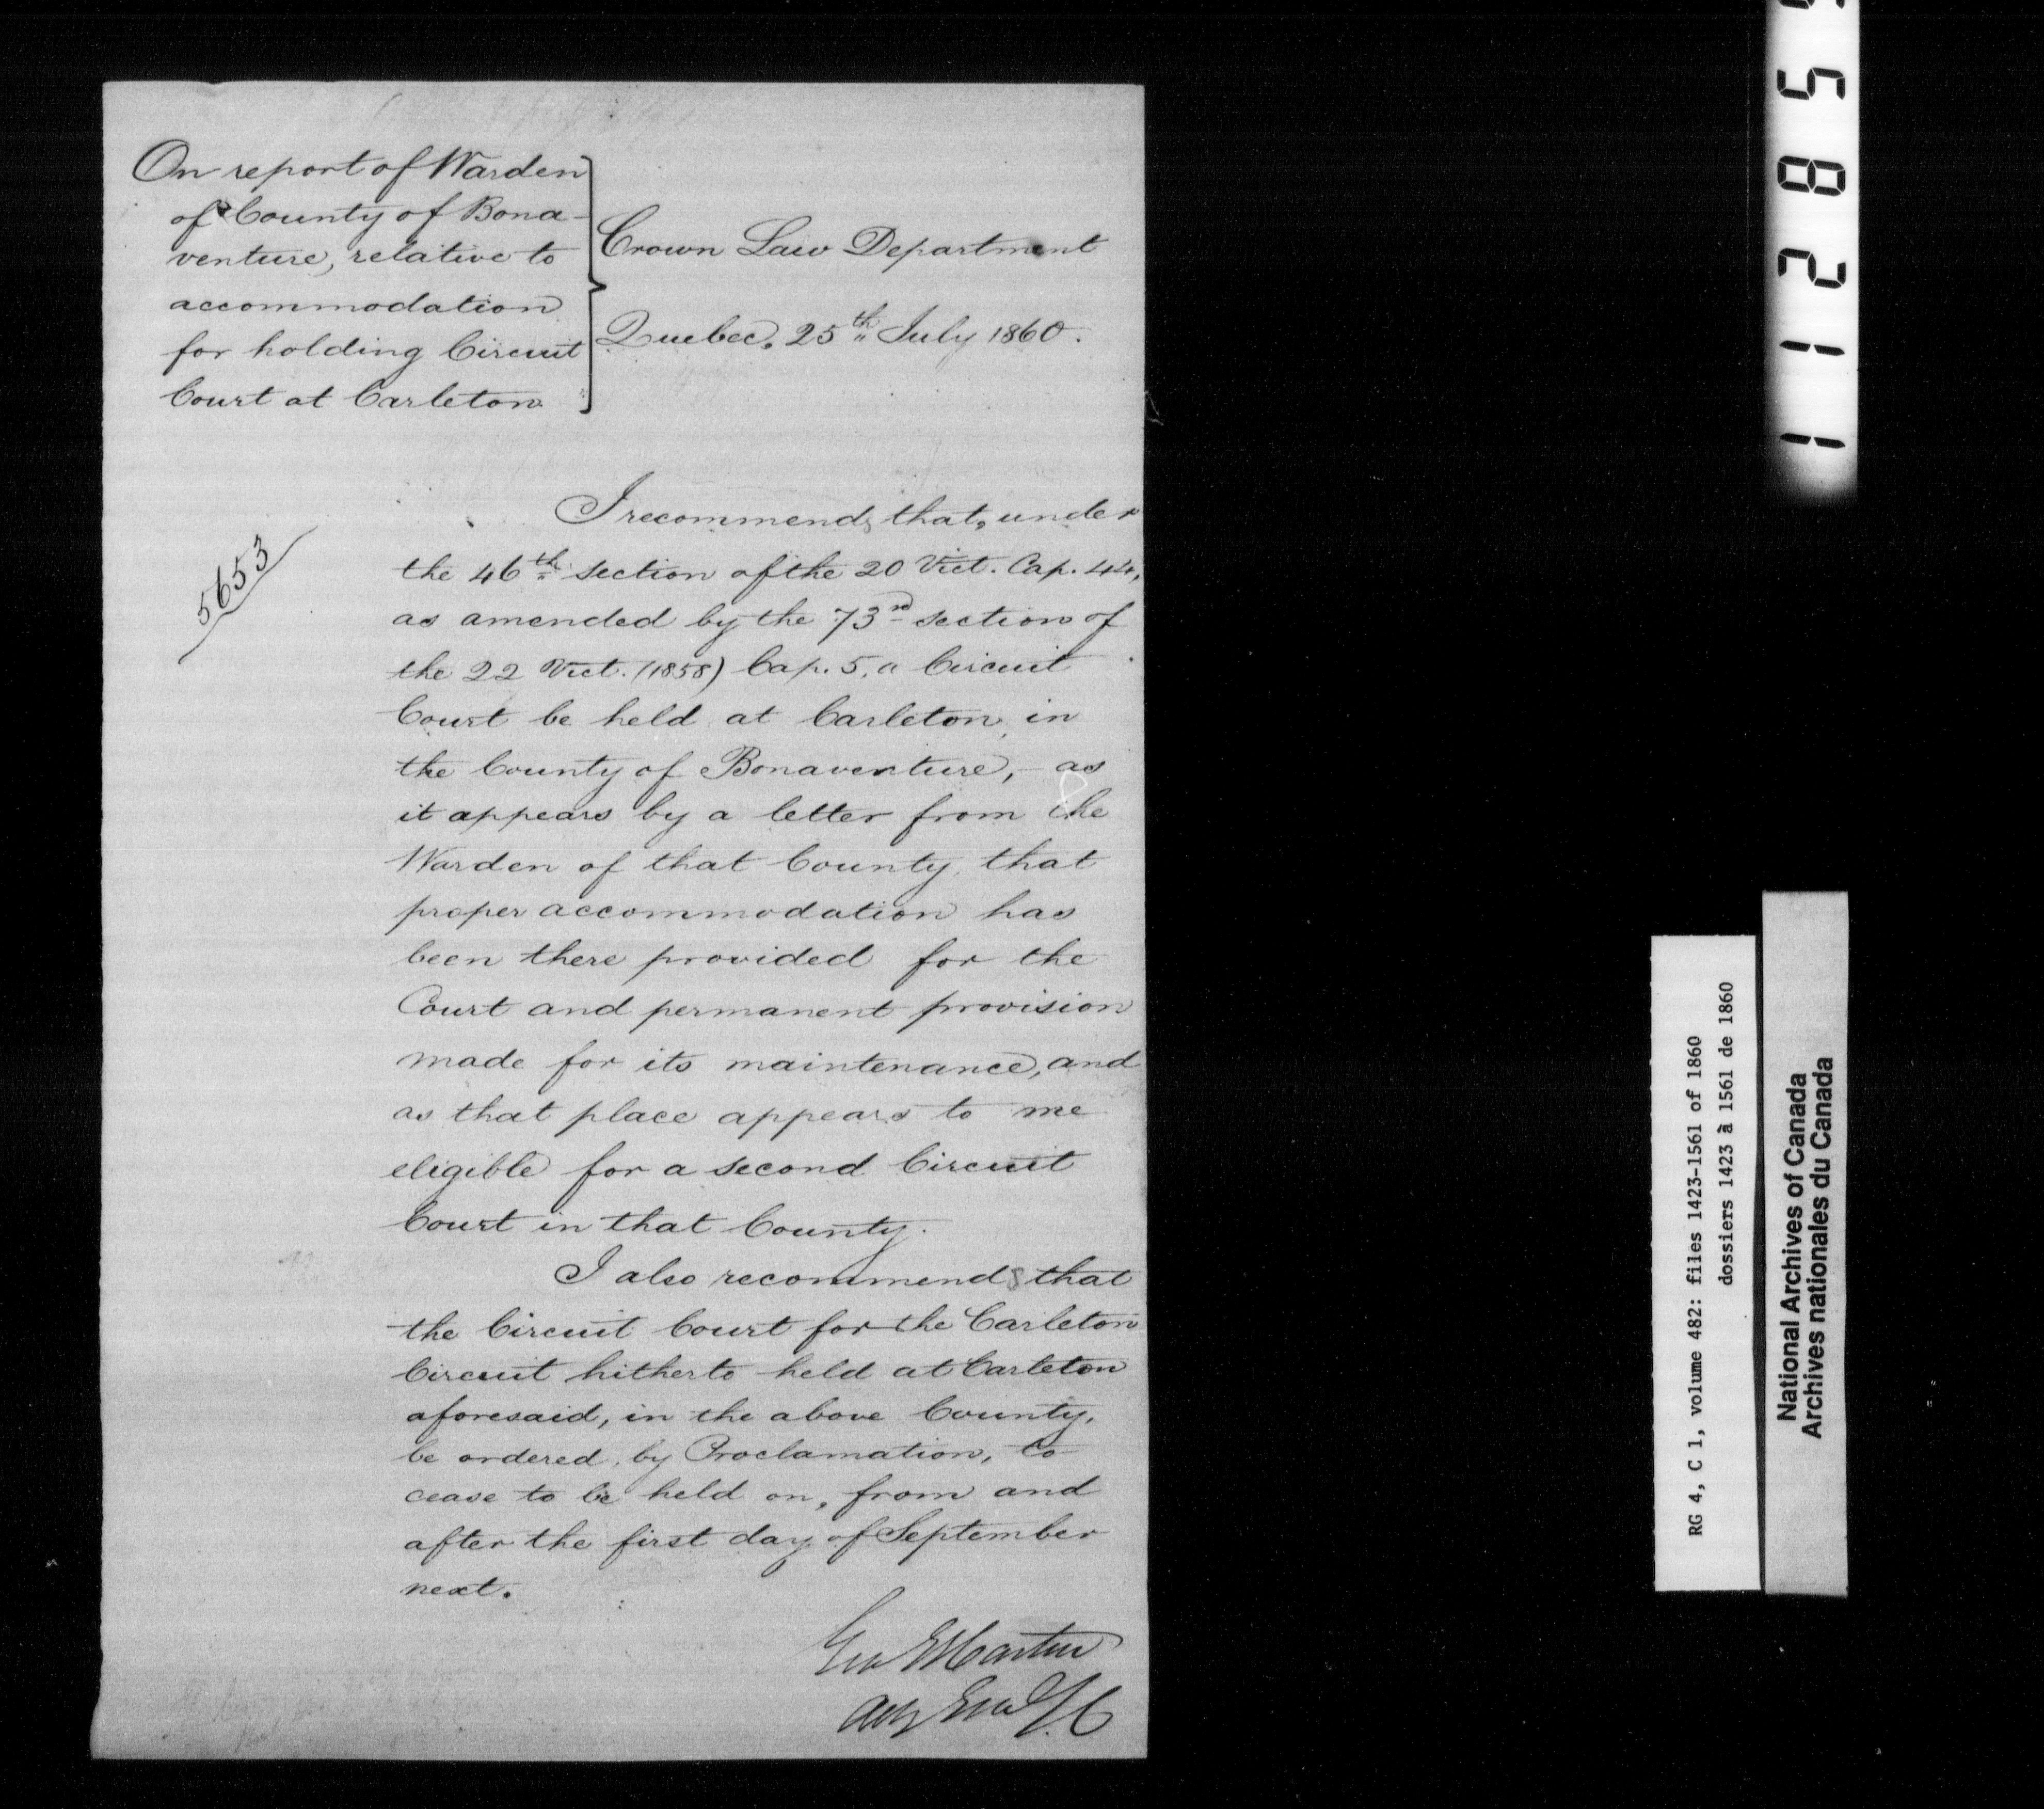 On report of Warden
of County of Bona-
venture, relative to
accommodation
for holding Circuit
Court at Carleton
Crown Law Department
Quebec, 25th July 1860.
5653
I recommend, that, under
the 46th section of the 20 Vict. Cap. 44,
as amended by the 73rd section of
the 22 Vict. (1858) Cap. 5, a Circuit
Court be held at Carleton, in
the County of Bonaventure, - as
it appears by a letter from the
Warden of that County, that
proper accommodation has
been there provided for the
Court and permanent provision
made for its maintenance, and
as that place appears to me
eligible for a second Circuit
Court in that County.
I also recommend, that
the Circuit Court for the Carleton
Circuit hitherto held at Carleton
aforesaid, in the above County,
be ordered, by Proclamation, to
cease to be held on, from and
after the first day of September
next.
Geo E Cartier
Atty Genl L.C
11285
RG 4, C 1, volume 482: files 1423-1561 of 1860
dossiers 1423 à 1561 de 1860
National Archives of Canada
Archives nationales du Canada